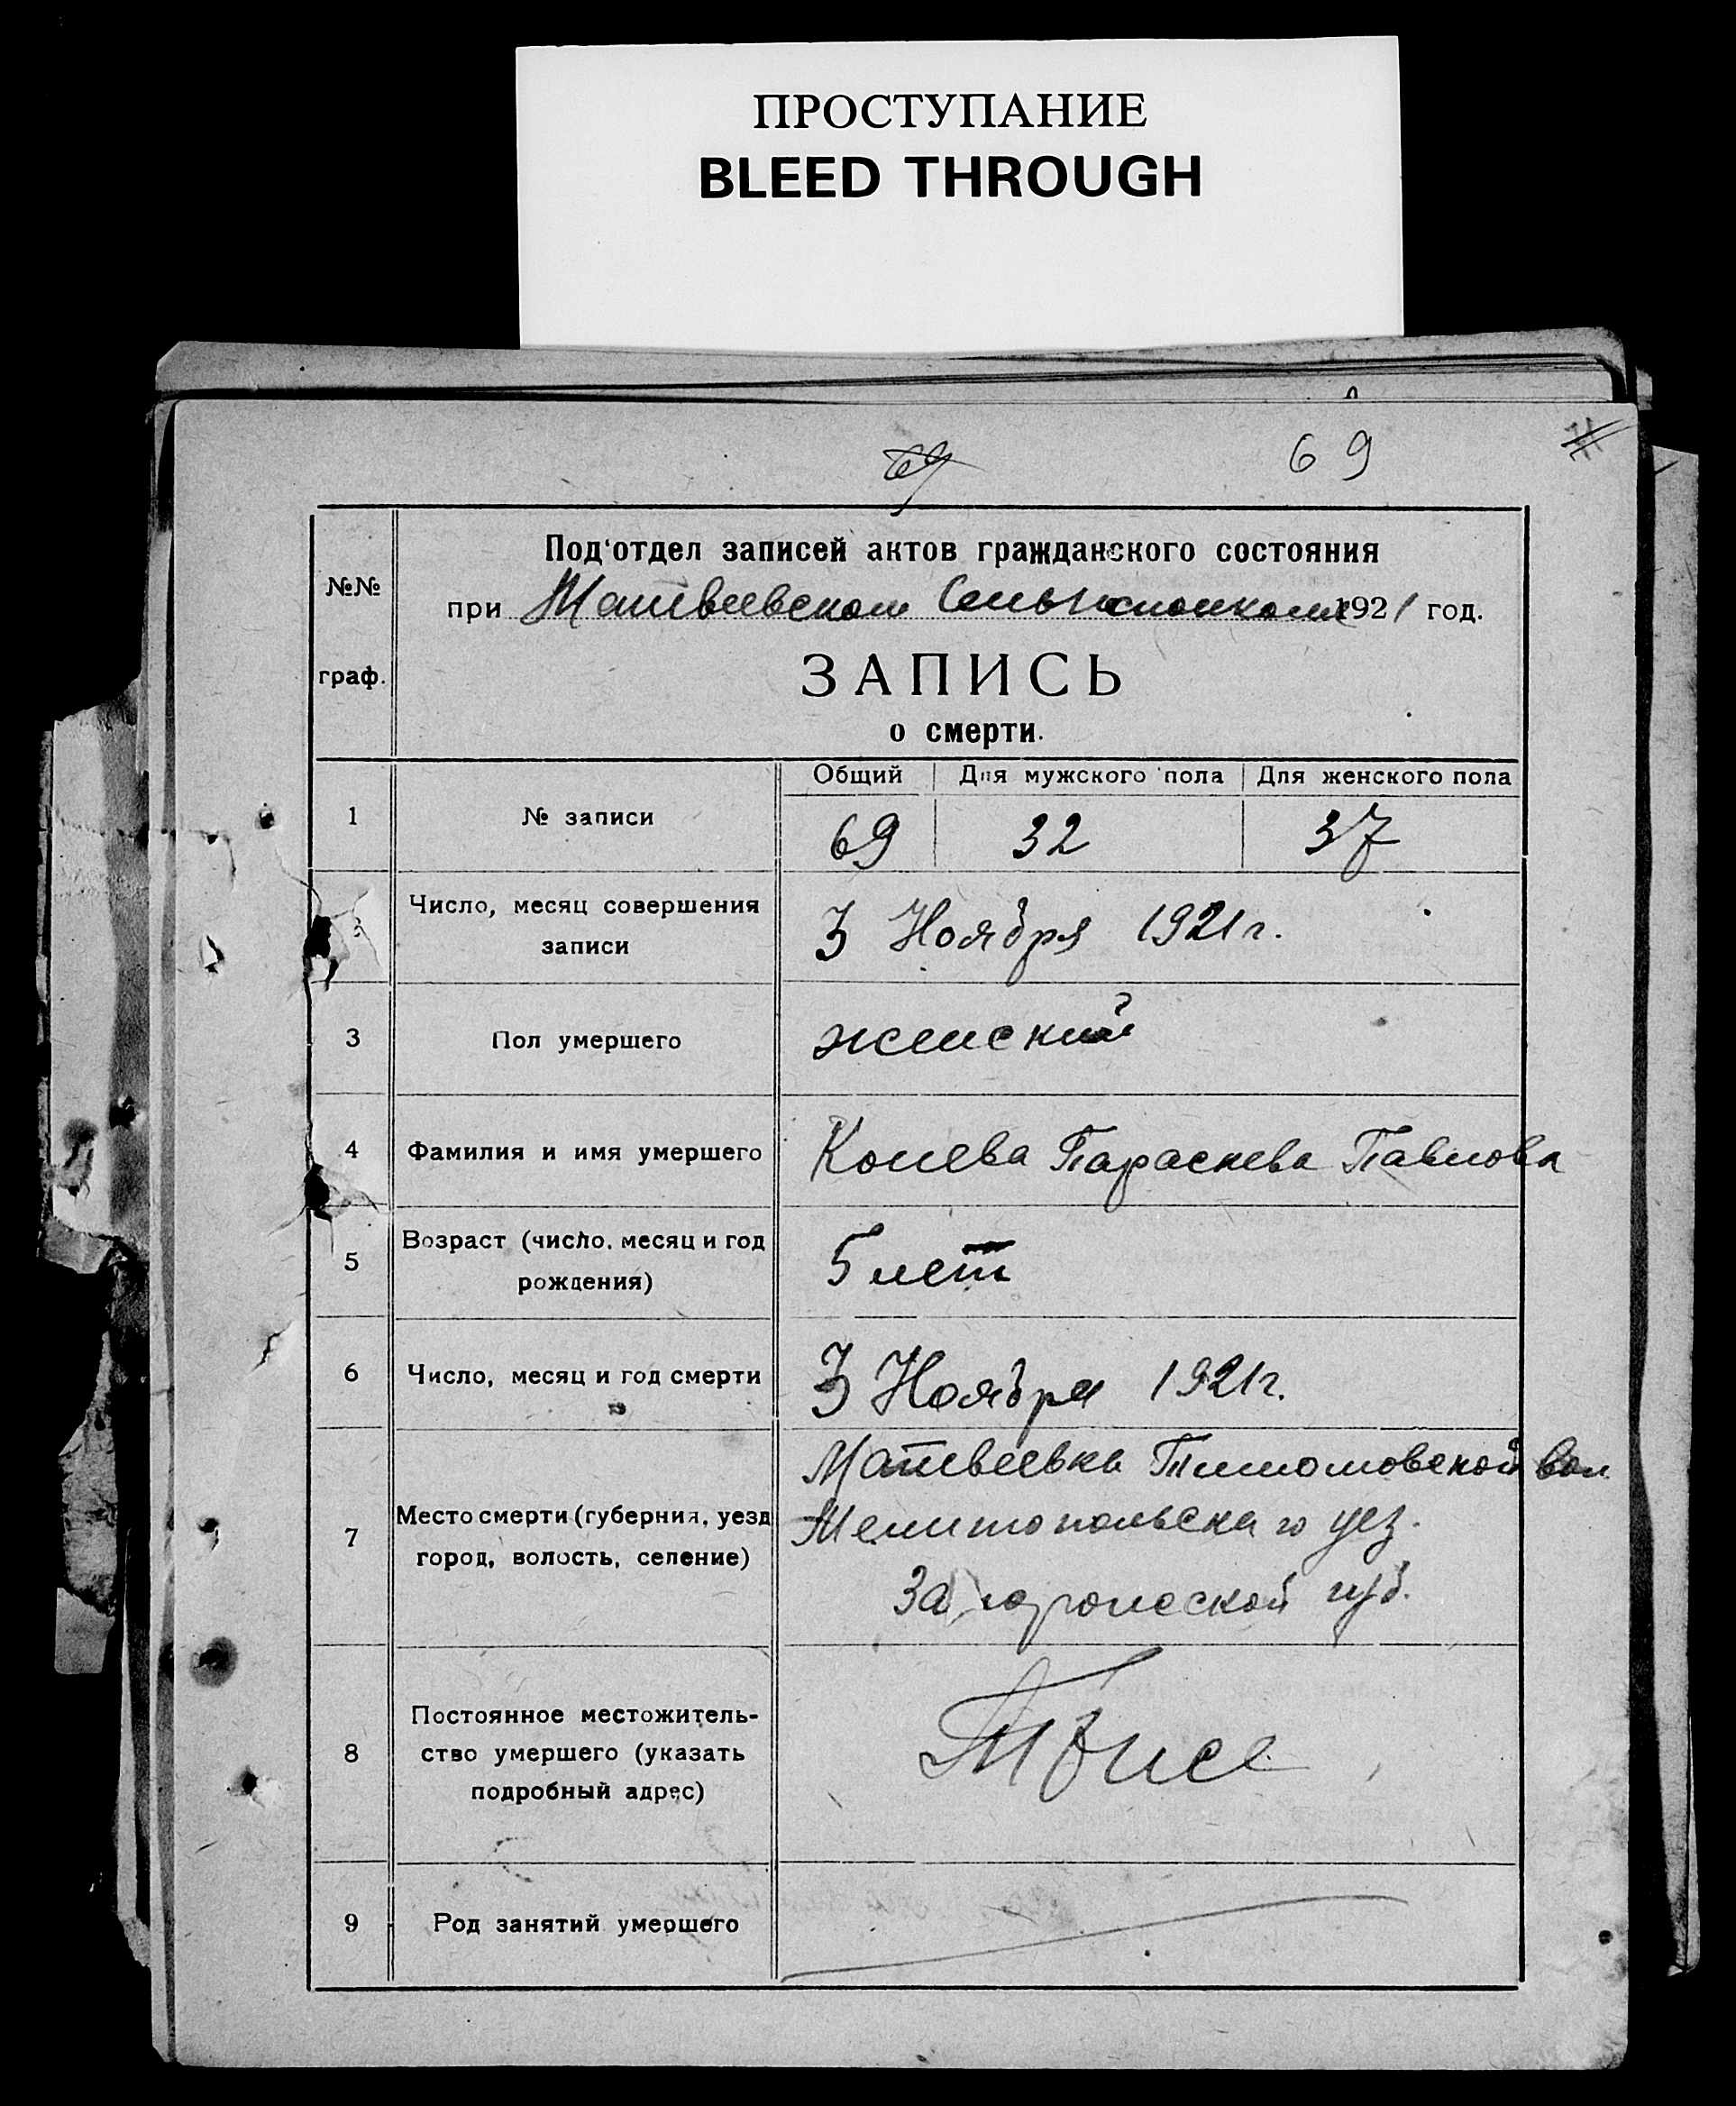 ПРОСТУПАНИЕ
BLEED THROUGH
69
69
№№
граф.
Под'отдел записей актов гражданского состояния
при Матвеевском 1921 год.
ЗАПИСЬ
о смерти.
Общий Для мужского пола Для женского пола
1 № записи 69 32 37
Число, месяц совершения
записи
3 Ноября 1921 г.
3 Пол умершего женский
4 Фамилия и имя умершего Конева Параскева Павлова
5 Возраст (число, месяц и год
рождения)
5 лет
6 Число, месяц и год смерти 3 Ноября 1921 г.
7 Место смерти (губерния, уезд
город, волость, селение)
Матвеевка вол.
Мелитопольска го уез.
губ.
8 Постоянное местожитель-
ство умершего (указать
подробный адрес)
9 Род занятий умершего